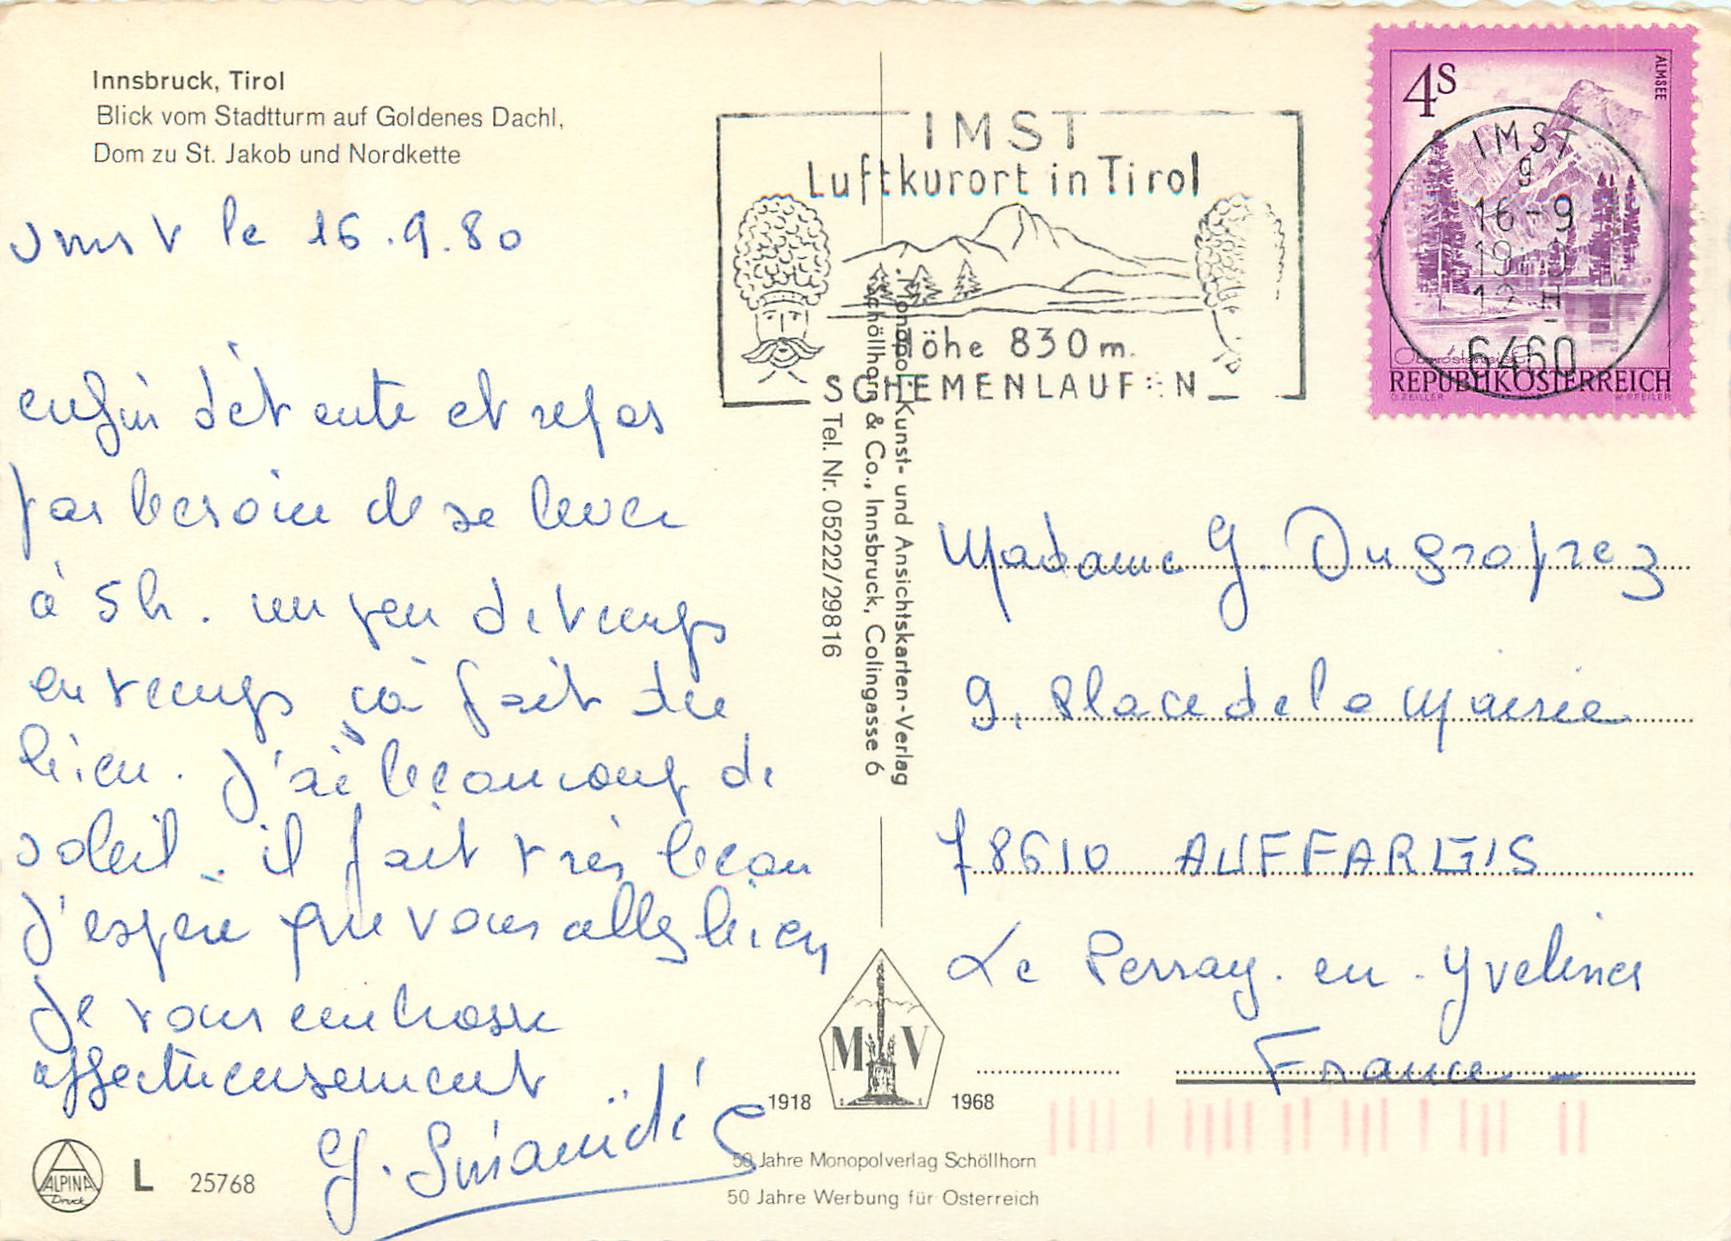 Innsbruck, Tirol
Blick vom Stadtturm auf Goldenes Dachl,
Dom zu St. Jakob und Nordkette
Imst le 16.9.80
enfin détente et repos
pas besoin de se lever
à 5h. un peu de temps
en temps ça fait du
bien. J'ai beaucoup de
soleil. il fait très beau
J'espère que vous allez bien
Je vous embrasse
affectueusement
ALPINA
Druck
L 25768
IMST
Luftkurort in Tirol
Höhe 830 m.
SCHEMENLAUFEN
Monopol-Kunst- und Ansichtskarten-Verlag
Schöllhorn & Co., Innsbruck, Colingasse 6
Tel. Nr. 05222/29816
4S
ALMSEE
REPUBLIK ÖSTERREICH
O. ZEILLER
W. PFEILER
IMST
9
16-9
6460
Madame G. Dugroprez
9, Place de la Mairie
78610 AUFFARGIS
Le Perray-en-Yvelines
France
M V
1918 1968
50 Jahre Monopolverlag Schöllhorn
50 Jahre Werbung für Österreich